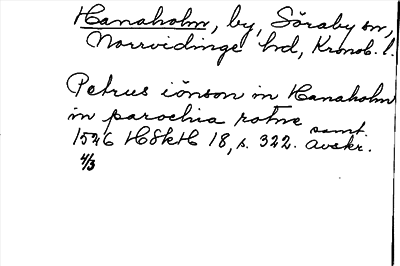 Hanaholm, by, Söraby sn,
Norrvidinge hd, Kronob. l.
Petrus iönson in Hanaholm
in parochia rotne
1526 HSkH 18, s. 322. samt.
avskr.
4/3